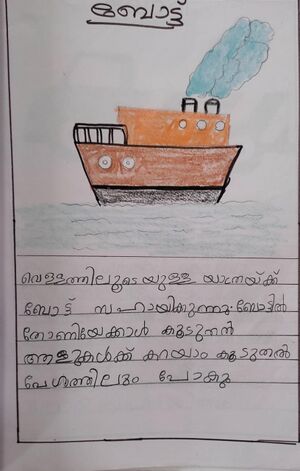 ബോട്ട്
വെള്ളത്തിലൂടെയുള്ള യാത്രയ്ക്ക്
ബോട്ട് സഹായിക്കുന്നു. ബോട്ടിൽ
തോണിയേക്കാൾ കൂടുതൽ
ആളുകൾക്ക് കയറാം കൂടുതൽ
വേഗത്തിലും പോകും